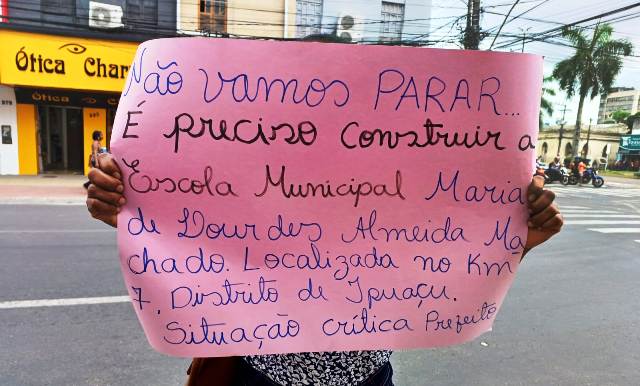 Ótica Char
Ótica Cha
Não vamos PARAR...
É preciso construir a
Escola Municipal Maria
de Lourdes Almeida Ma
chado. Localizada no Km
7, Distrito de Ipuaçu.
Situação crítica Prefeito